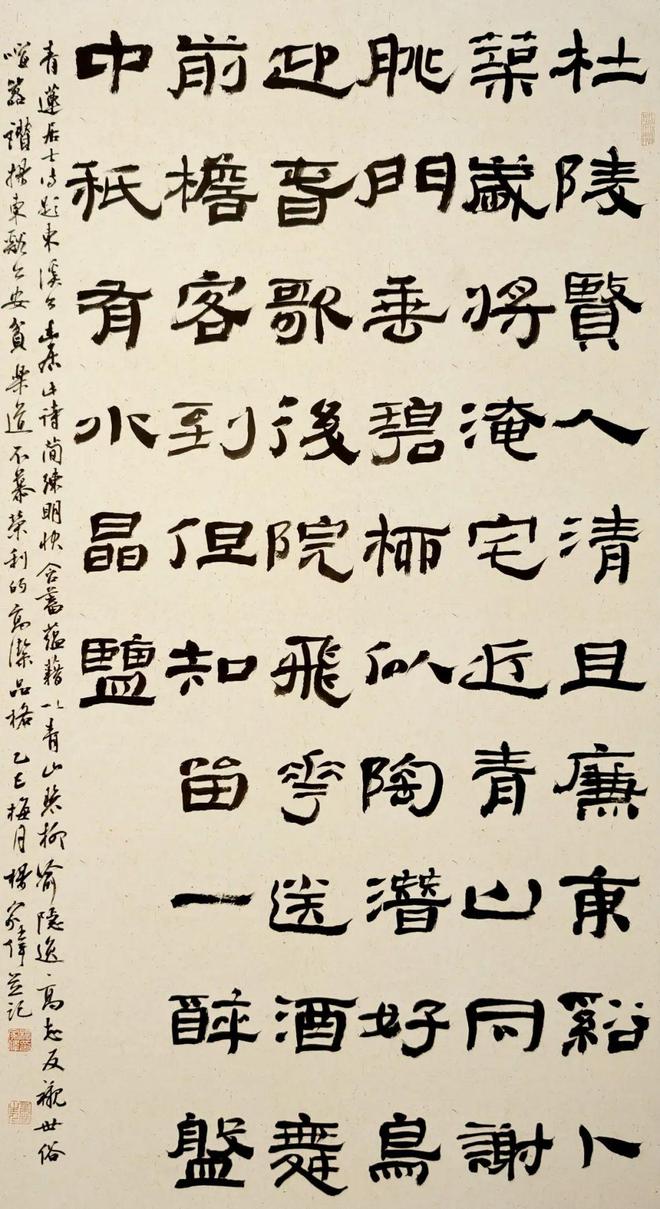 杜陵賢人清且廉東谿卜
築歲將淹宅近青山同謝
朓門垂碧柳似陶潛好鳥
迎春歌後院飛花送酒舞
前檐客到但知留一醉盤
中祇有水晶鹽
青蓮居士詩題東溪公幽居此詩簡練明快含蓄蘊藉以青山碧柳喻隱逸高志反襯世俗
喧囂讚揚東谿公安貧樂道不慕榮利的高潔品格 乙巳梅月楊家偉並記